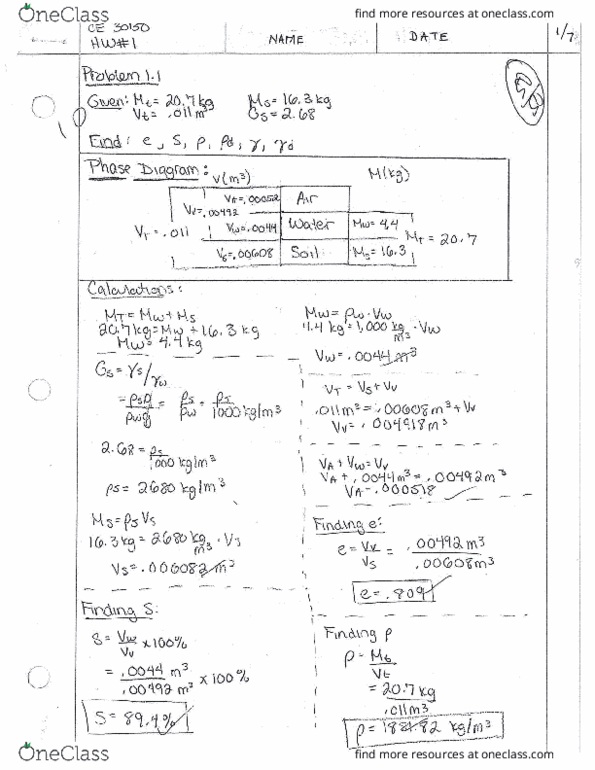 OneClass
find more resources at oneclass.com
CE 30150
HW#1
NAME
DATE
1/7
Problem 1.1
Given: Mt = 20.7 kg Ms = 16.3 kg
Vt = .011 m³ Gs = 2.68
Find: e, S, ρ, ρd, γ, γd
Phase Diagram: V(m³) M(kg)
VA=.00052 Air
Vv=.00492
VT = .011 Vw=.0044 Water Mw = 4.4 Mt = 20.7
Vs=.00608 Soil Ms = 16.3
Calculations:
MT = Mw + Ms
20.7 kg = Mw + 16.3 kg
Mw = 4.4 kg
Gs = γs/γw
= ρsg/ρwg = ρs/ρw = ρs/1000 kg/m³
2.68 = ρs/1000 kg/m³
ρs = 2680 kg/m³
Ms = ρs Vs
16.3 kg = 2680 kg/m³ · Vs
Vs = .006082 m³
Finding S:
S = Vw/Vv x 100%
= .0044 m³/.00492 m³ x 100%
S = 89.4%
Mw = ρw · Vw
4.4 kg = 1,000 kg/m³ · Vw
Vw = .0044 m³
VT = Vs + Vv
.011 m³ = .00608 m³ + Vv
Vv = .004918 m³
VA + Vw = Vv
VA + .0044 m³ = .00492 m³
VA = .000518
Finding e:
e = Vv/Vs = .00492 m³/.00608 m³
e = .809
Finding ρ
ρ = Mt/Vt
= 20.7 kg/.011 m³
ρ = 1881.82 kg/m³
OneClass
find more resources at oneclass.com